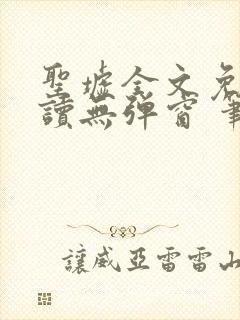 聖墟全文免
讀無彈窗 筆
讓威亞雷雷山